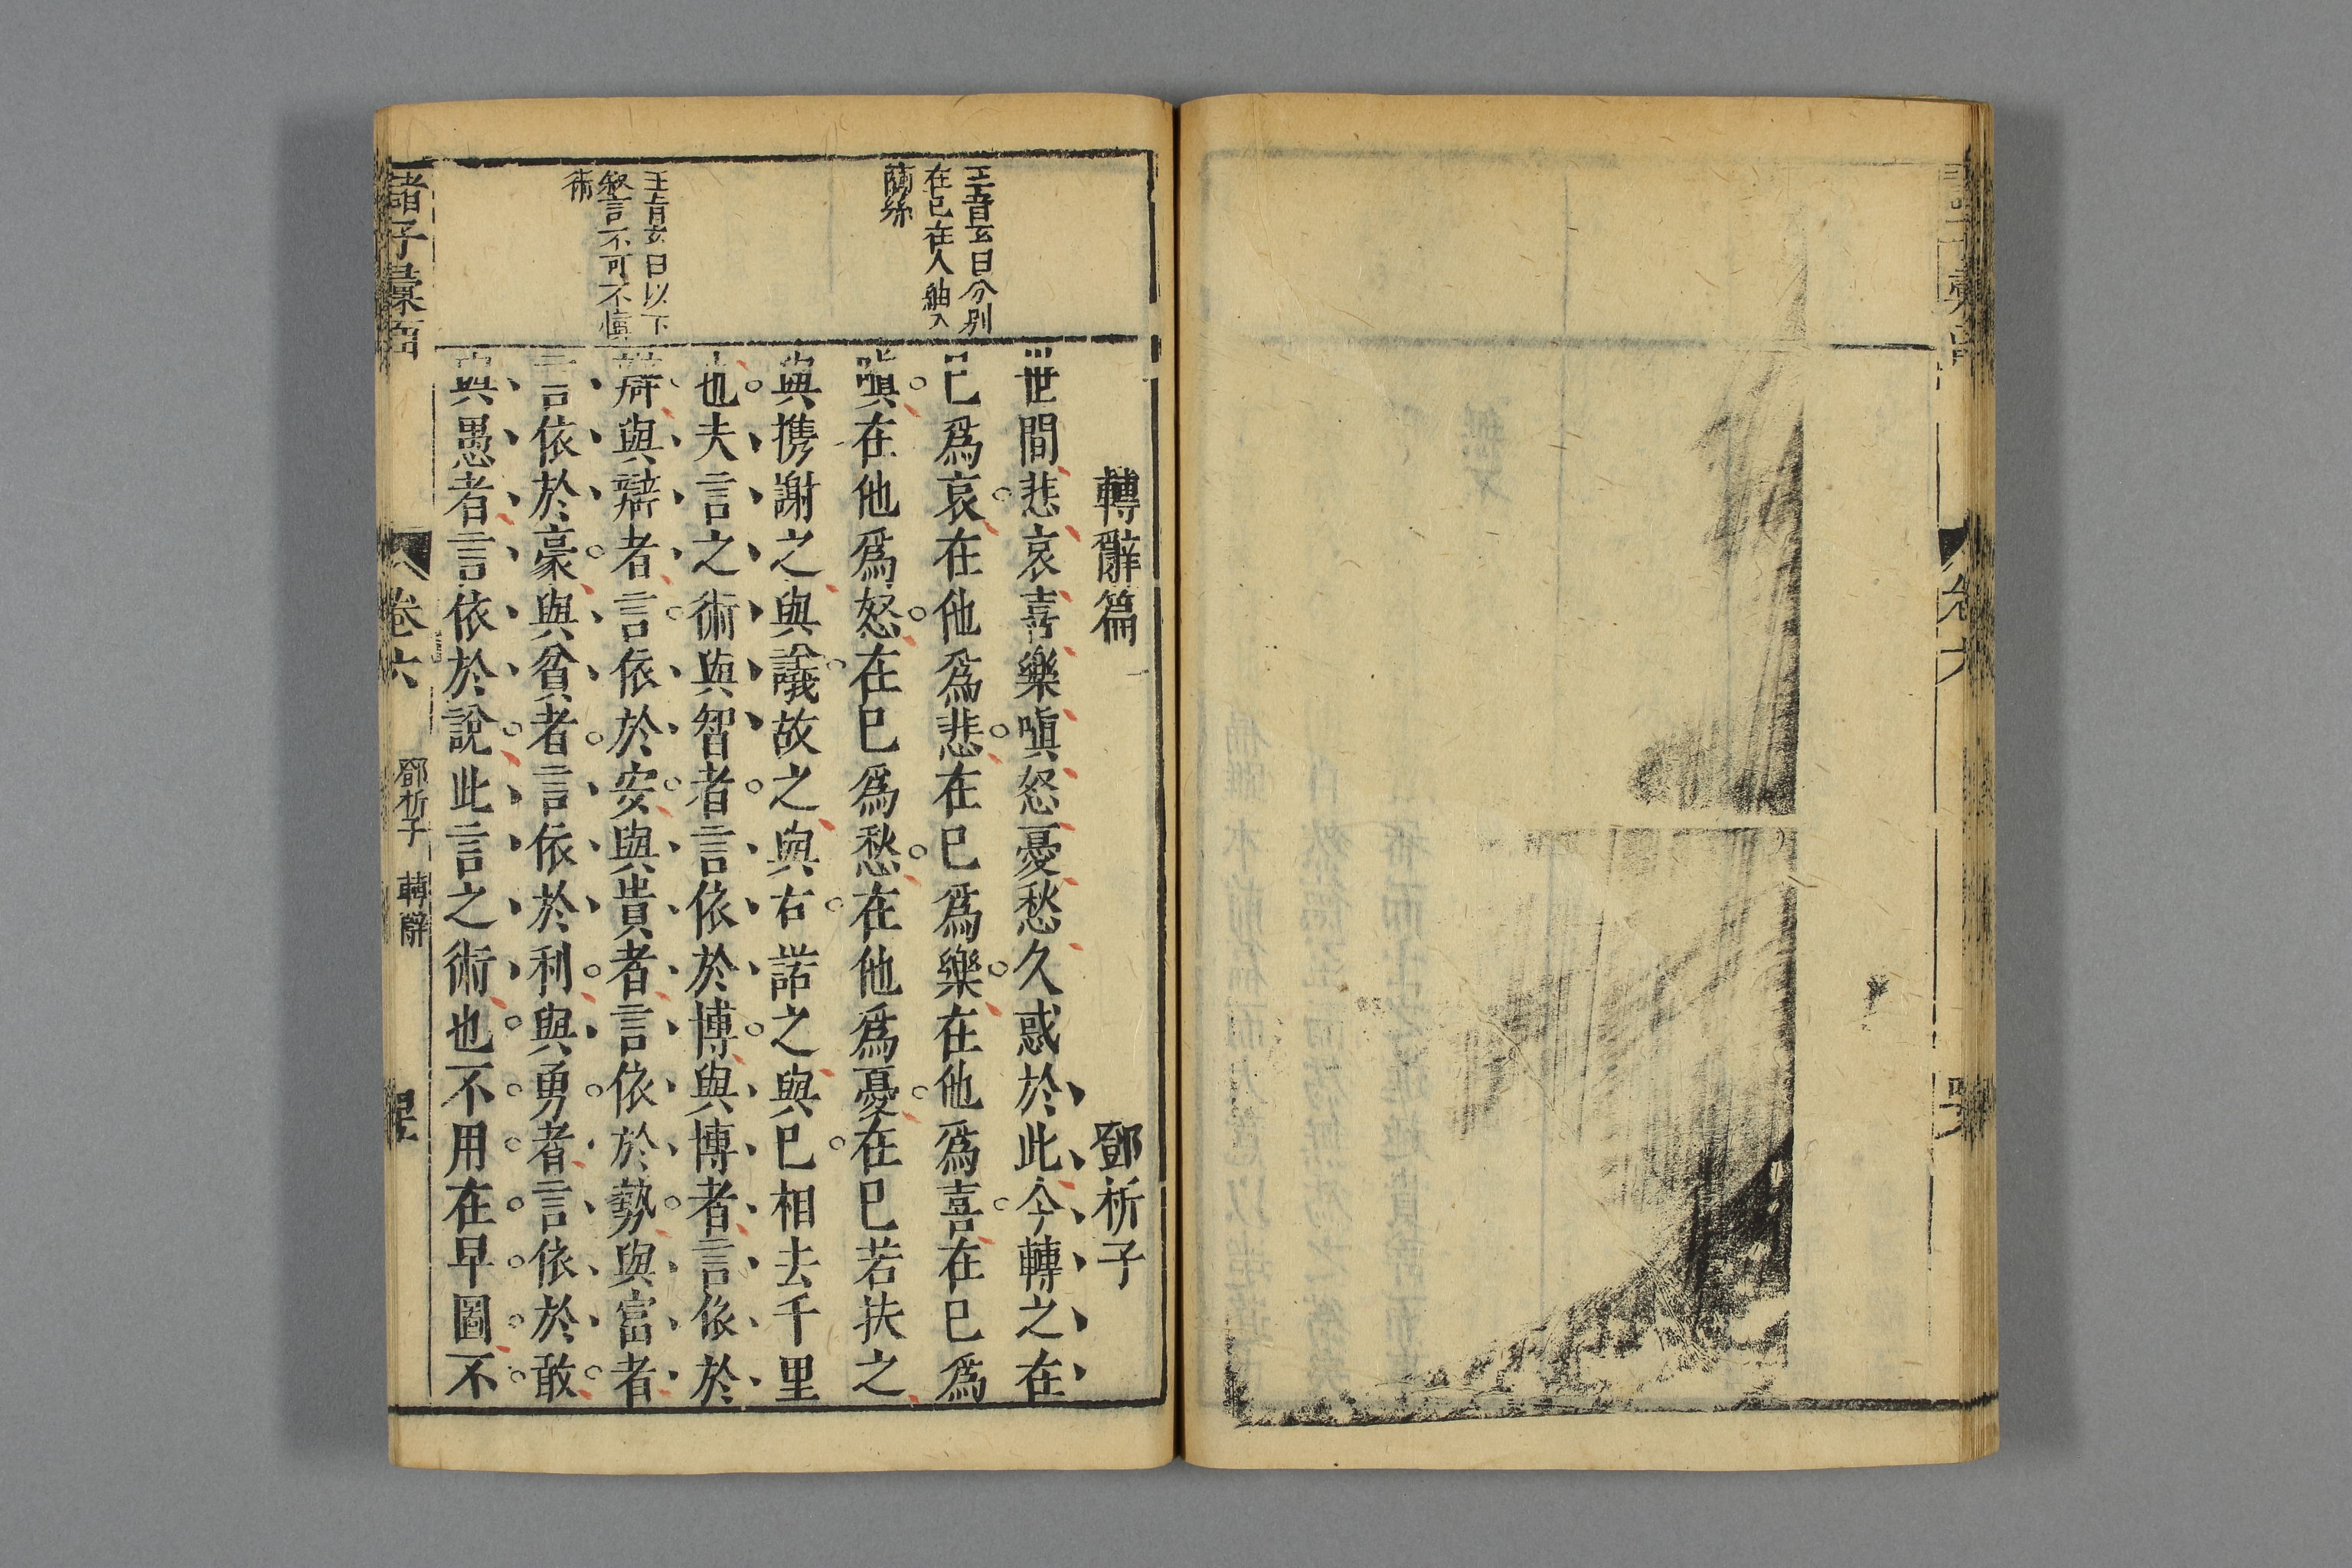 轉辭篇　鄧析子
世間悲哀喜樂嗔怒憂愁久惑於此今轉之在
已爲哀在他爲悲在已爲樂在他爲喜在已爲
嗔在他爲怒在已爲愁在他爲憂在已若扶之
與携謝之與議故之與右諾之與已相去千里
也夫言之術與智者言依於博與博者言依於
辯與辯者言依於安與貴者言依於勢與富者
言依於豪與貧者言依於利與勇者言依於敢
與愚者言依於說此言之術也不用在早圖不
曰分別
在已在人
王
曰以下
叙言不可不慎
術
諸子彙函
卷六
鄧析子　轉辭
卷六